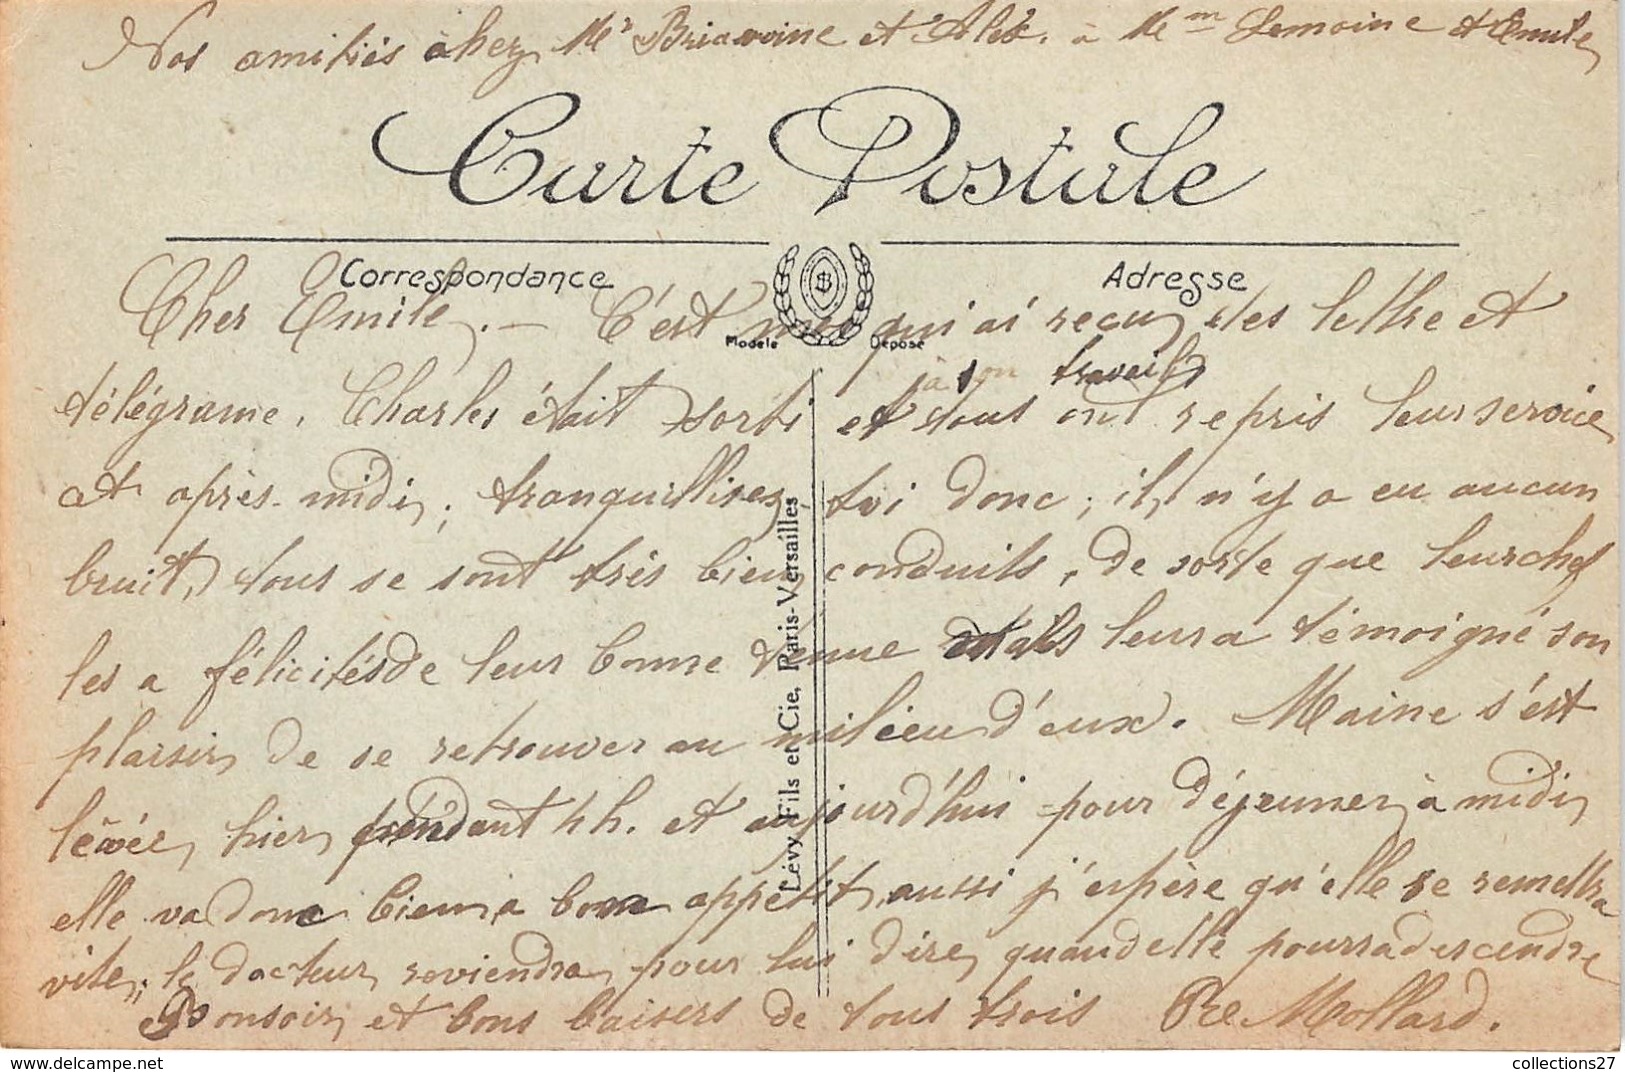 Nos amitiés chez Mr Briavoine et Aléx. à Mme Lemoine et Emile
Carte Postale
Correspondance
Adresse
Modèle Déposé
Cher Emile. — C'est moi qui ai reçu tes lettre et
à son travail
télégrame. Charles était sorti et tous ont repris leur service
cet après-midi; tranquillises-toi donc; il n'y a eu aucun
bruit, tous se sont très bien conduits, de sorte que leur chef
les a félicités de leur bonne tenue leur a témoigné son
plaisir de se retrouver au milieu d'eux. Maine s'est
levée, hier pendant 4h. et aujourd'hui pour déjeuner à midi,
elle va donc bien, a bon appétit, aussi j'espère qu'elle se remettra
vite; le docteur reviendra pour lui dire quand elle pourra descendre
Bonsoir et bons baisers de tous trois Mollard.
Lévy Fils et Cie, Paris-Versailles
collections27